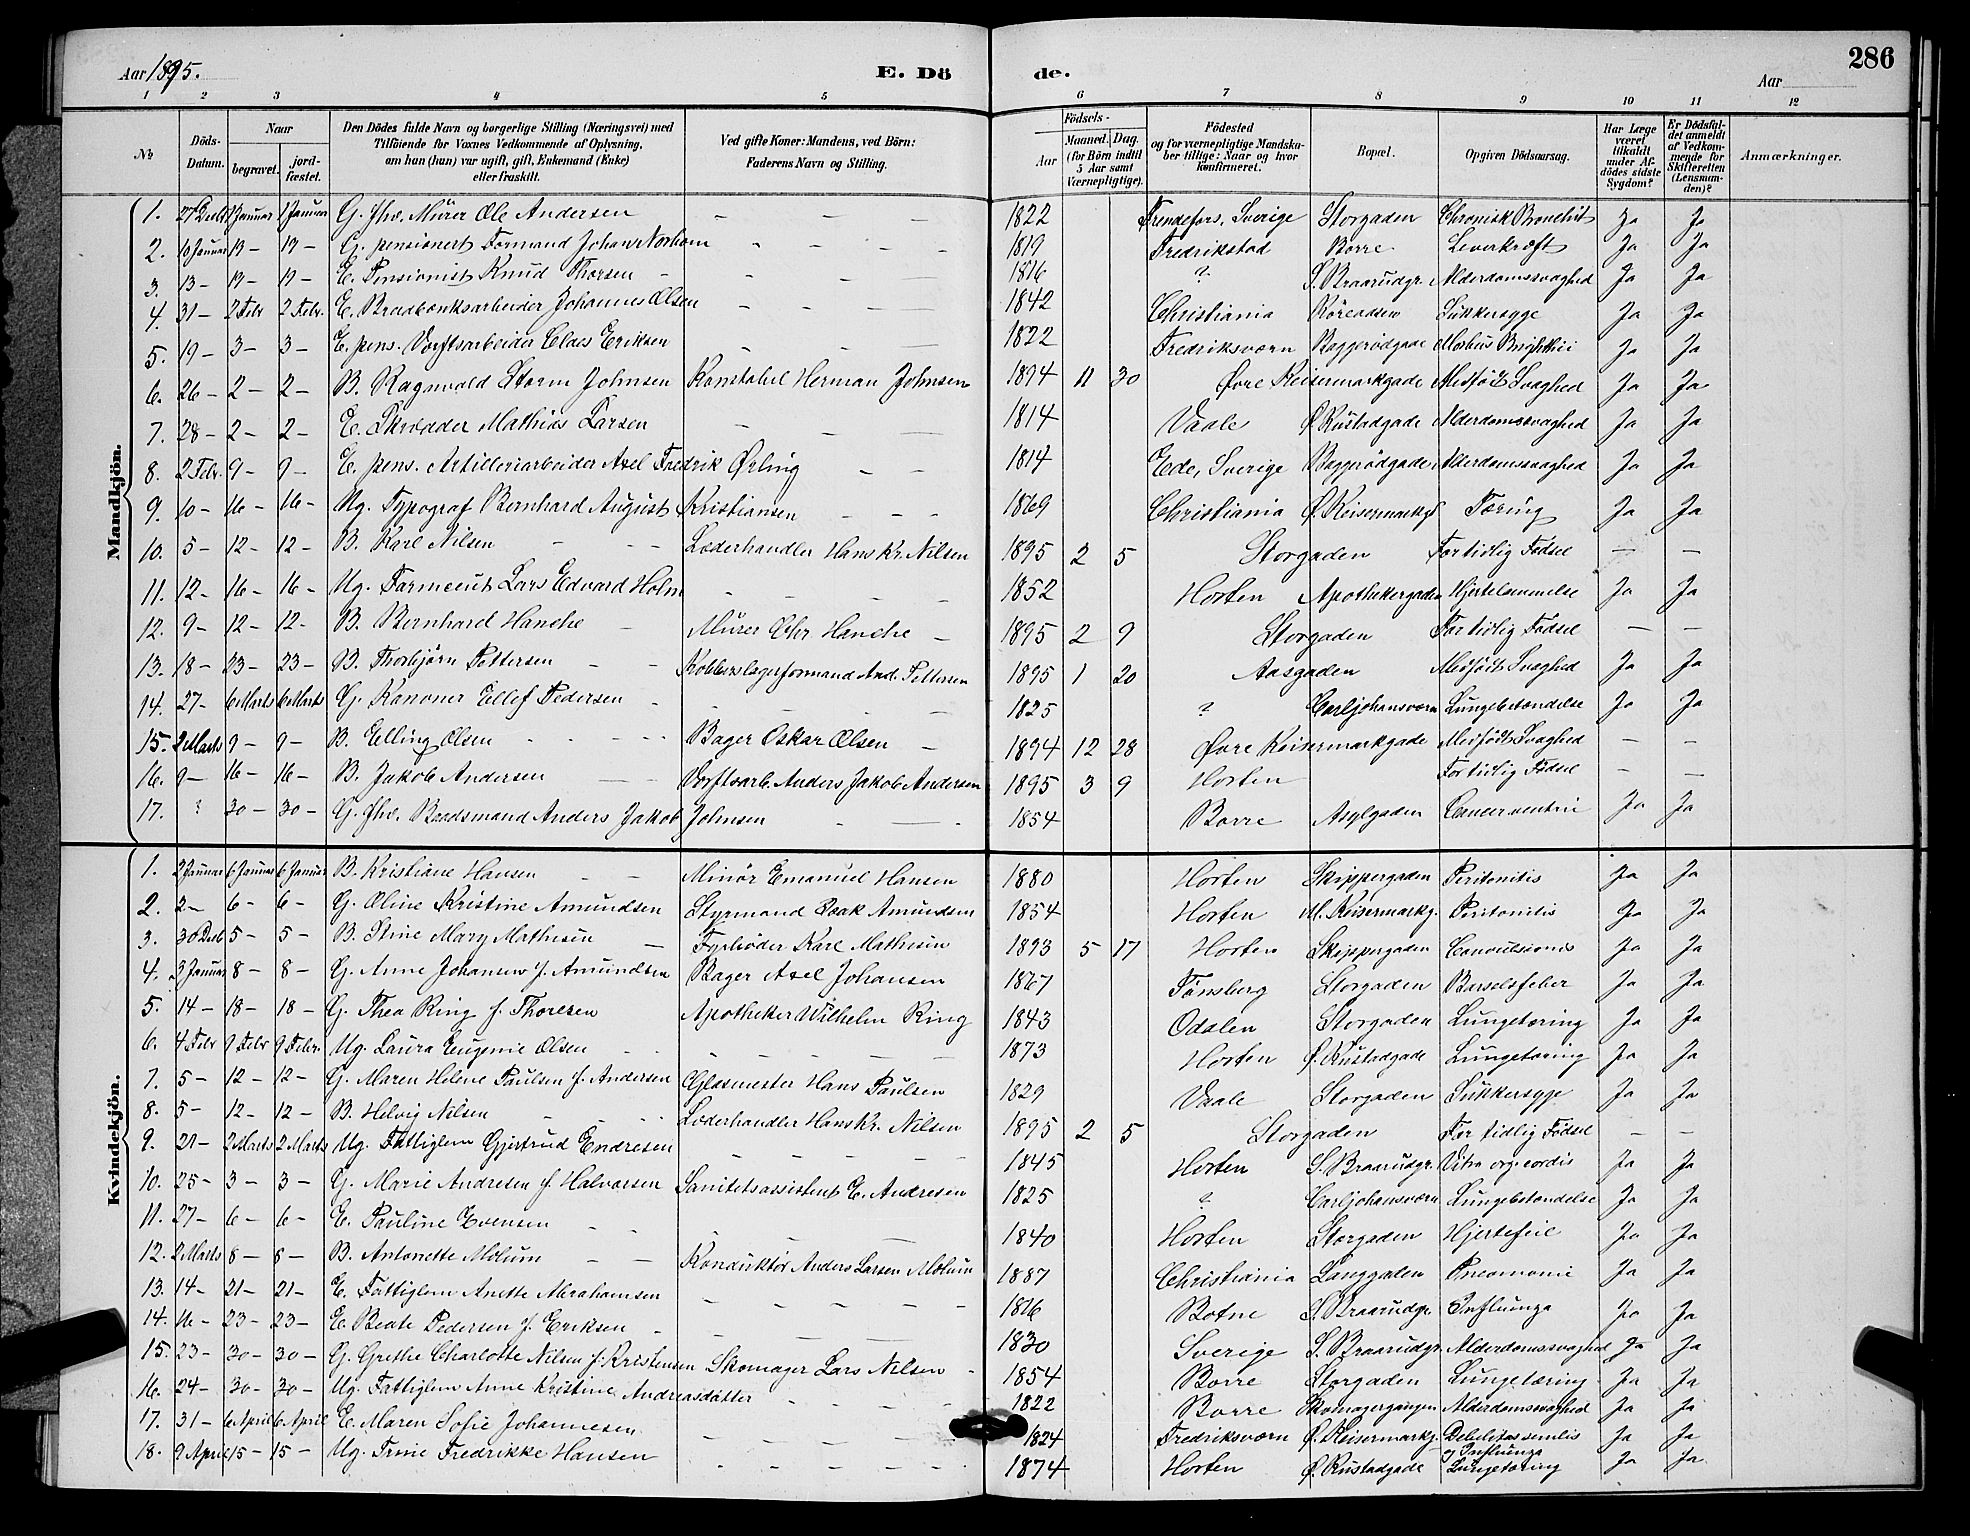 Aar 1895. E. Dö de. Aar 286
1 2 3 4 5 6 7 8 9 10 11 12
No Döds-Datum. Naar begravet. jord-fæstet. Den Dödes fulde Navn og borgerlige Stilling (Næringsvei) med Tilföiende for Voxnes Vedkommende af Oplysning, om han (hun) var ugift, gift, Enkemand (Enke) eller fraskilt. Ved gifte Koner: Mandens, ved Börn: Faderens Navn og Stilling. Födsels- Aar Maaned. Dag. (for Börn indtil 5 Aar samt Værnepligtige). Födested og for værnepligtige Mandskaber tillige: Naar og hvor konfirmeret. Bopæl. Opgiven Dödsaarsag. Har Læge været tilkaldt under Afdödes sidste Sygdom? Er Dödsfaldet anmeldt af Vedkommende for Skifteretten (Lensmanden)? Anmærkninger.
Mandkjön.
1. 27 Decbr 1 Januar 1 Januar G. fhv. Murer Ole Andersen — — — 1822 Frendefors, Sverige Storgaden Chronisk Bronchit Ja Ja
2. 10 Januar 19 — 19 — G. pensionert Formand Johan Norbom - - — 1819 Fredrikstad Borre Leverkræft Ja Ja
3. 13 — 19 — 19 — E. Pensionist Knud Thorsen - - - — 1816 ? S. Braarudgr. Alderdomssvaghed Ja Ja
4. 31 — 2 Febr 2 Febr. E. Bradbænksarbeider Johannes Olsen - - — 1842 Christiania Röreaasen Sukkersyge Ja Ja
5. 19 — 3 — 3 — E. pens. Værftsarbeider Claes Eriksen - - — 1822 Fredriksværn Baggerödgade Morbus Brightii Ja Ja
6. 26 — 2 — 2 — B. Ragnvald Storm Johnsen Konstabel Herman Johnsen 1894 11 30 Øvre Keisermarkgade Medfödt Svaghed Ja Ja
7. 28 — 2 — 2 — E. Skrædder Mathias Larsen - - — 1814 Vaale Ø. Rustadgade Alderdomssvaghed Ja Ja
8. 2 Febr. 9 — 9 — E. pens. Artilleriarbeider Axel Fredrik Ørling — — 1814 Ede, Sverige Baggerödgaden Alderdomssvaghed Ja Ja
9. 10 — 16 — 16 — Ug. Typograf Bernhard August Kristiansen — - - 1869 Christiania Ø. Keisermarkg Tæring Ja Ja
10. 5 — 12 — 12 — B. Karl Nilsen - - - Læderhandler Hans Kr. Nilsen 1895 2 5 Storgaden For tidlig Födsel — —
11. 12 — 16 — 16 — Ug. Farmceut Lars Edvard Holm - - - - 1852 Horten Apothekergaden Hjertelammelse Ja Ja
12. 9 — 12 — 12 — B. Bernhard Hanche — Murer Chr. Hanche — 1895 2 9 Storgaden For tidlig Födsel — —
13. 18 — 23 — 23 — B. Thorbjörn Pettersen - - Kobberslagerformand And. Pettersen 1895 1 20 Aasgaden Medfödt Svaghed Ja Ja
14. 27 — 6 Marts 6 Marts G. Kanoner Ellef Pedersen - - - — 1825 ? Carljohansværn Lungebetændelse Ja Ja
15. 2 Marts 9 — 9 — B. Elling Olsen - - - - Bager Oskar Olsen — 1894 12 28 Øvre Keisermarkgade Medfödt Svaghed — —
16. 9 — 16 — 16 — B. Jakob Andersen — Værftsarb. Anders Jakob Andersen 1895 3 9 Horten For tidlig Födsel — —
17. ? 30 — 30 — G. fhv. Baadsmand Anders Jakob Johnsen - — - 1854 Borre Asylgaden Cancer ventrii Ja Ja
Kvindekjön.
1. 2 Januar 6 Januar 6 Januar B. Kristiane Hansen - - Minör Emanuel Hansen 1880 Horten Skippergaden Peritonitis Ja Ja
2. 2 — 6 — 6 — G. Oline Kristine Amundsen Styrmand Isak Amundsen 1854 Horten M. Keisermarkg. Peritonitis Ja Ja
3. 30 Decb 5 — 5 — B. Stine Mary Mathisen — Fyrböder Karl Mathisen 1893 5 17 Horten Skippergaden Convulsiones Ja Ja
4. 3 Januar 8 — 8 — G. Anne Johansen f. Amundsen Bager Axel Johansen 1867 Tönsberg Storgaden Barselsfeber Ja Ja
5. 14 — 18 — 18 — G. Thea Ring f. Thoresen Apotheker Wilhelm Ring 1843 Odalen Storgaden Lungetæring Ja Ja
6. 4 Febr 9 Febr 9 Febr. Ug. Laura Eugenie Olsen - - - - — — 1873 Horten Ø. Rustadgade Lungetæring Ja Ja
7. 5 — 12 — 12 — G. Maren Helene Paulsen f. Andersen Glasmester Hans Paulsen 1829 Vaale Storgaden Sukkersyge Ja Ja
8. 5 — 12 — 12 — B. Helvig Nilsen - - - Læderhandler Hans Kr. Nilsen 1895 2 5 Storgaden For tidlig Födsel — —
9. 21 — 2 Marts 2 Marts Ug. Fattiglem Gjertrud Endresen — — — — 1845 Horten S. Braarudgr. Vitra org. cordis Ja Ja
10. 25 — 3 — 3 — G. Marie Andresen f. Halvorsen Sanitetsassistent E. Andresen 1825 ? Carljohansværn Lungebetændelse Ja Ja
11. 27 — 6 — 6 — E. Pauline Evensen - - - — — 1840 Horten Storgaden Hjertefeil Ja Ja
12. 2 Marts 8 — 8 — B. Antonette Molum - — Konduktör Anders Larsen Molum 1887 Christiania Langgaden Pneomonie Ja Ja
13. 14 — 21 — 21 — E. Fattiglem Anette Abrahamsen — — — — — 1816 Botne S. Braarudgr Influenza Ja Ja
14. 16 — 23 — 23 — E. Beate Pedersen f. Eriksen - - — — 1830 Sverige S. Braarudgr. Alderdomssvaghed Ja Ja
15. 23 — 30 — 30 — G. Grethe Charlotte Nilsen f. Kristensen Skomager Lars Nilsen - 1854 Borre Storgaden Lungetæring Ja Ja
16. 24 — 30 — 30 — Ug. Fattiglem Anne Kristine Andreasdatter - - - - 1822 Borre Skomagergangen Alderdomssvaghed Ja Ja
17. 31 — 6 April 6 April E. Maren Sofie Johannesen - - - - 1824 Fredriksværn Ø. Keisermarkg. Debelitas senilis og Influenza Ja Ja
18. 9 April 15 — 15 — Ug. Trine Fredrikke Hansen - - - - 1874 Horten Ø. Rustadgade Lungetæring Ja Ja